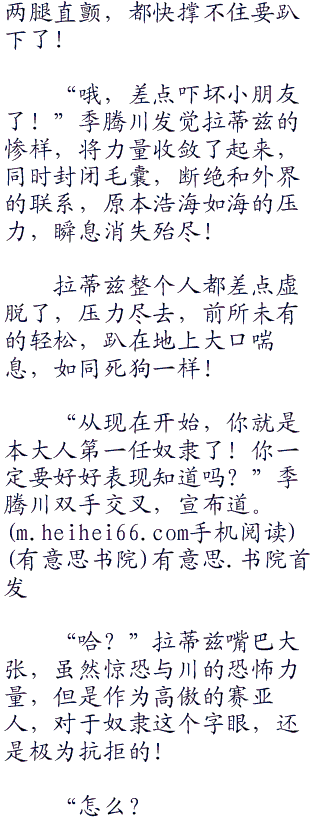 两腿直颤，都快撑不住要趴
下了！
“哦，差点吓坏小朋友
了！”季腾川发觉拉蒂兹的
惨样，将力量收敛了起来，
同时封闭毛囊，断绝和外界
的联系，原本浩海如海的压
力，瞬息消失殆尽！
拉蒂兹整个人都差点虚
脱了，压力尽去，前所未有
的轻松，趴在地上大口喘
息，如同死狗一样！
“从现在开始，你就是
本大人第一任奴隶了！你一
定要好好表现知道吗？”季
腾川双手交叉，宣布道。
(m.heihei66.com手机阅读)
(有意思书院)有意思.书院首
发
“哈？”拉蒂兹嘴巴大
张，虽然惊恐与川的恐怖力
量，但是作为高傲的赛亚
人，对于奴隶这个字眼，还
是极为抗拒的！
“怎么？